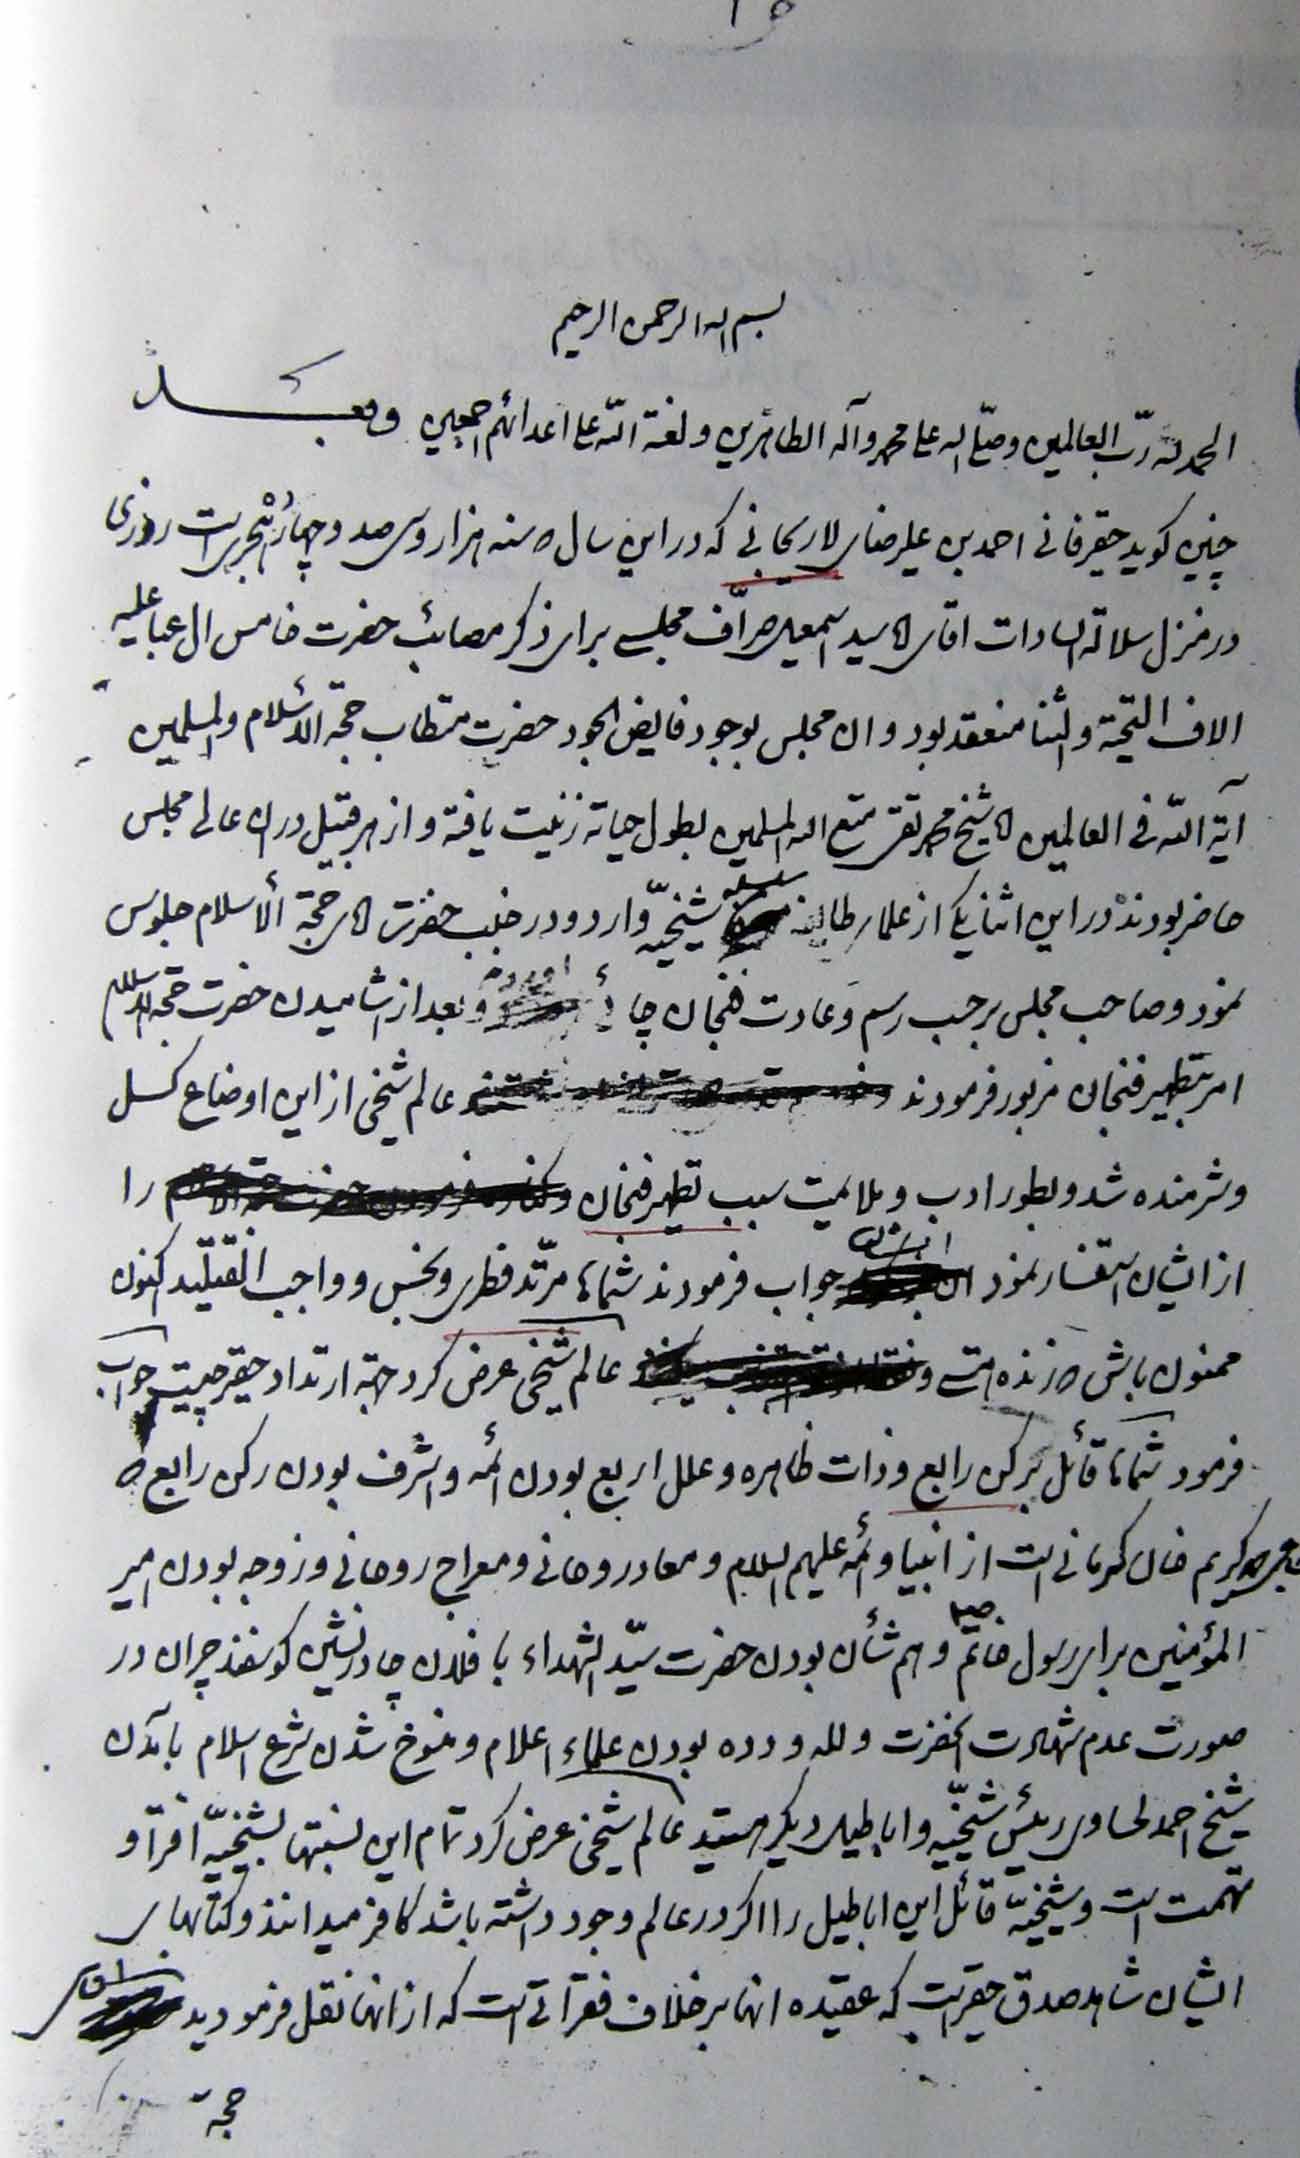 بسم الله الرحمن الرحیم
الحمد لله ربّ العالمین و صلّی الله علی محمد و آله الطاهرین و لعنة الله علی اعدائهم اجمعین و بعد
چنین گوید حقیر فانی احمد بن علیرضای لاریجانی که در این سال که سنه هزار و سی صد و چهار هجریست روزی
در منزل سلالة السادات اقای اقا سید اسمعیل صرّاف مجلسی برای ذکر مصائب حضرت خامس ال عبا علیه
الاف التحیّة و الثنا منعقد بود و ان مجلس بوجود فایض الجود حضرت مستطاب حجّة الاسلام و المسلمین
آیة الله فی العالمین اقا شیخ محمد تقی متع الله المسلمین بطول حیاته زینت یافته و از هر قبیل در ان عالی مجلس
حاضر بودند در این اثنا یکی از علمای طایفه سلسله شیخیّه وارد و در جنب حضرت اقای حجّة الاسلام جلوس
نمود و صاحب مجلس بر حسب رسم و عادت فنجان چائی اورده و بعد از اشامیدن حضرت حجة الاسلام
امر بتطهیر فنجان مزبور فرمودند عالم شیخی از این اوضاع کسل
و شرمنده شد و بطور ادب و ملایمت سبب تطهیر فنجان را
از ایشان استفسار نمود ایشان جواب فرمودند شماها مرّتد فطری و نجس و واجب القتلید اکنون
ممنون باش که زنده هستی و عالم شیخی عرض کرد جهة ارتداد حقیر چیست جواب
فرمود شماها قائل برکن رابع و ذات ظاهره و علل اربع بودن ائمه و اشرف بودن رکن رابع که
حاجی محمد کریم خان کرمانی است از انبیا و ائمه علیهم السلام و معاد روحانی و معراج روحانی و زوجه بودن امیر
المؤمنین برای رسول خاتم ص و هم شأن بودن حضرت سیّد الشهداء با فلان چادر نشین کوسفند چران در
صورت عدم شهادت انحضرت و لله و دده بودن علماء اعلام و منسوخ شدن شرع اسلام با آمدن
شیخ احمد لحساوی رئیس شیخیّه و اباطیل دیکر هستید عالم شیخی عرض کرد تمام این نسبتها بشیخیّه افترا و
تهمت است و شیخیّه قائل این اباطیل را اکر در عالم وجود داشته باشد کافر میدانند و کتابهای
ایشان شاهد صدق حقیر است که عقیده انها بر خلاف فقراتی است که از انها نقل فرمودید اقای
حجة